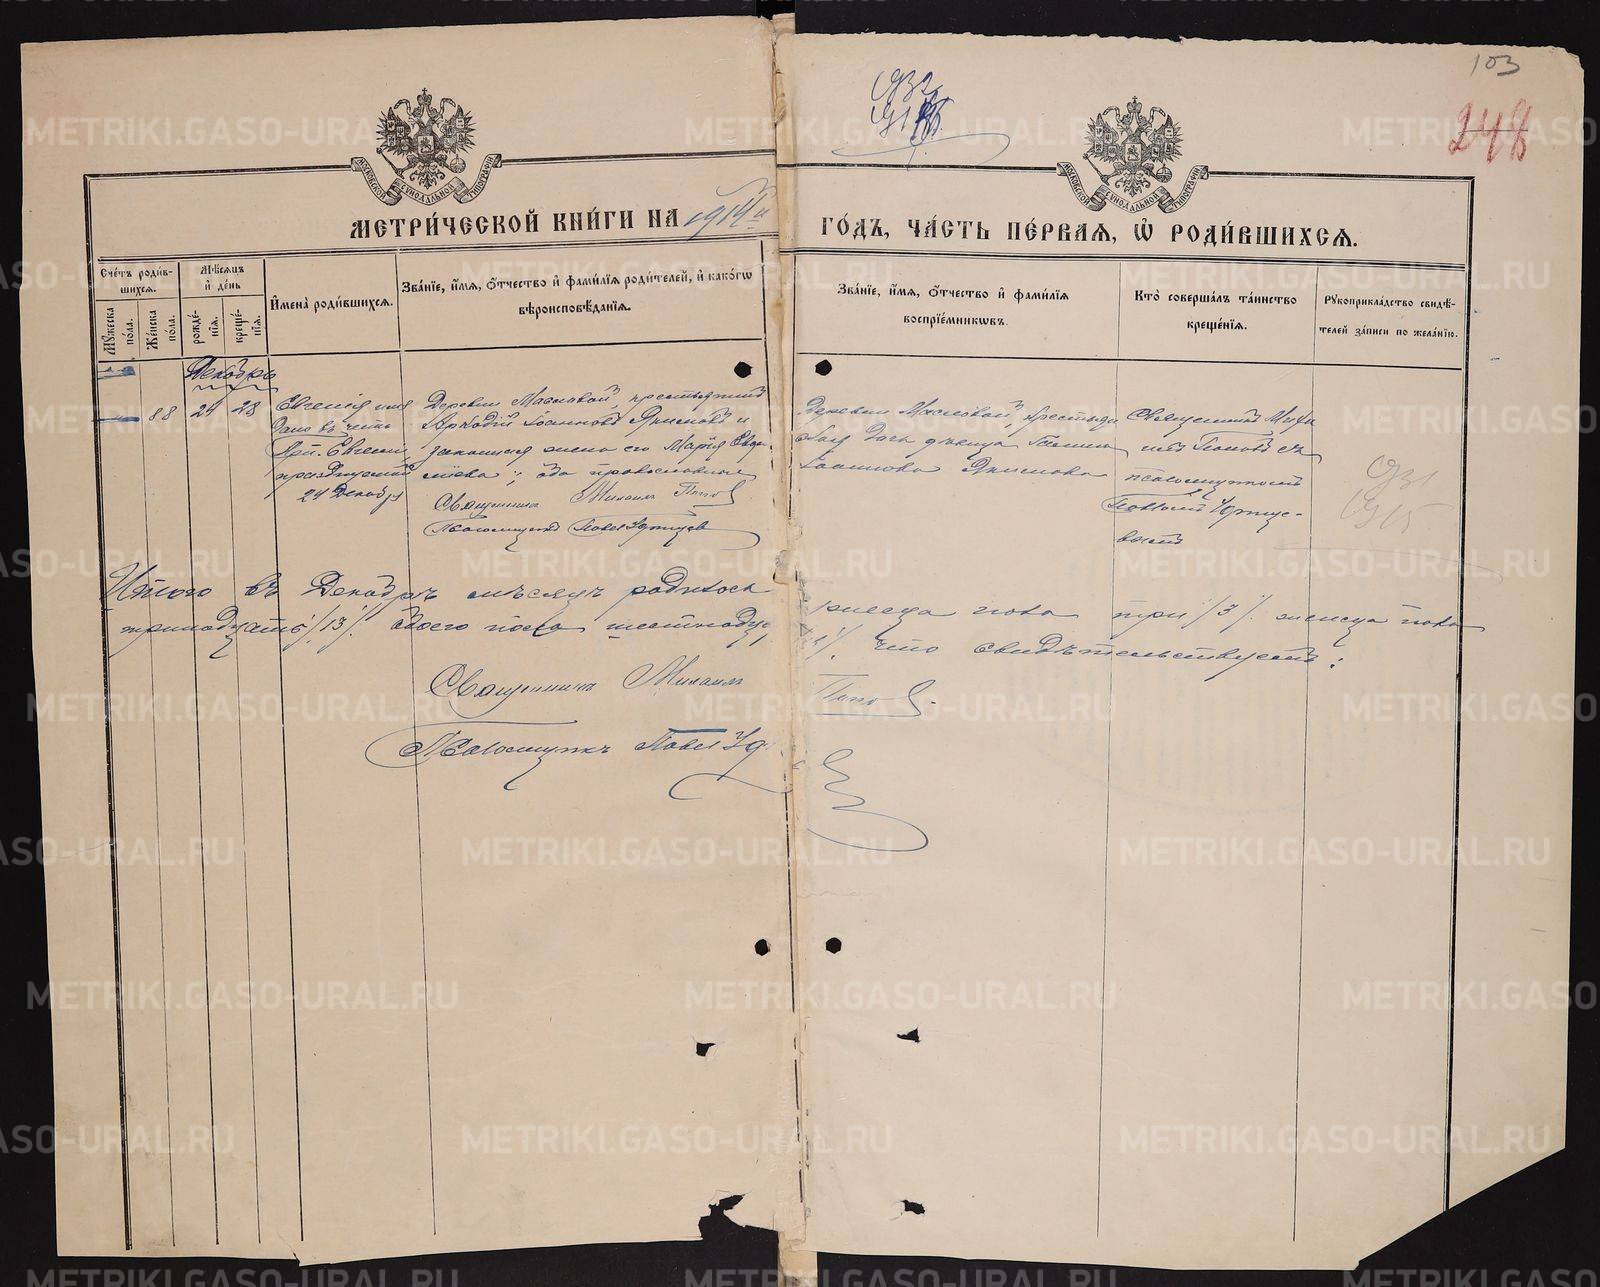 103
248
932
МОСКОВСКОЙ СѴНОДАЛЬНОЙ ТИПОГРАФІИ
МОСКОВСКОЙ СѴНОДАЛЬНОЙ ТИПОГРАФІИ
МЕТРИ́ЧЕСКОЙ КНИ́ГИ НА 1914й ГО́ДЪ, ЧА́СТЬ ПЕ́РВАЯ, Ѡ҆ РОДИ́ВШИХСЯ.
Сче́тъ роди́вшихся.
Му́жеска по́ла.
Же́нска по́ла.
Мѣ́сяцъ и҆ де́нь
рожде́нїя.
креще́нїя.
И҆мена̀ роди́вшихся.
Зва́нїе, и҆́мя, ѻ҆́тчество и҆ фами́лїя роди́телей, и҆ како́гѡ
вѣроисповѣ́данїя.
Зва́нїе, и҆́мя, ѻ҆́тчество и҆ фами́лїя
воспрїе́мникѡвъ.
Кто̀ соверша́лъ та́инство
креще́нїя.
Рꙋкоприкла́дство свидѣ́-
телей за́писи по жела́нїю.
Декабрь
88 24 28
Евгенія имя
дано въ честь
Прп. Евгеніи
празднуемой
24 Декабря
Деревни Масловой, крестьянинъ
Аркадій Іоанновъ Якимовъ и
законная жена его Марія Евдо
кимова; оба православные
Священникъ Михаилъ Поповъ
Псаломщикъ Павелъ
Деревни Масловой, крестьян
дочь дѣвица Галина
Іоаннова Якимова
Священникъ Миха
илъ Поповъ съ
псаломщикомъ
Павломъ
931
915
Итого въ Декабрѣ мѣсяцѣ родилось мужеска пола три /3/. женска пола
тринадцать /13/. Обоего пола шестнадца что свидѣтельствуетъ:
Священникъ Михаилъ Поповъ.
Псаломщикъ Павелъ
METRIKI.GASO-URAL.RU